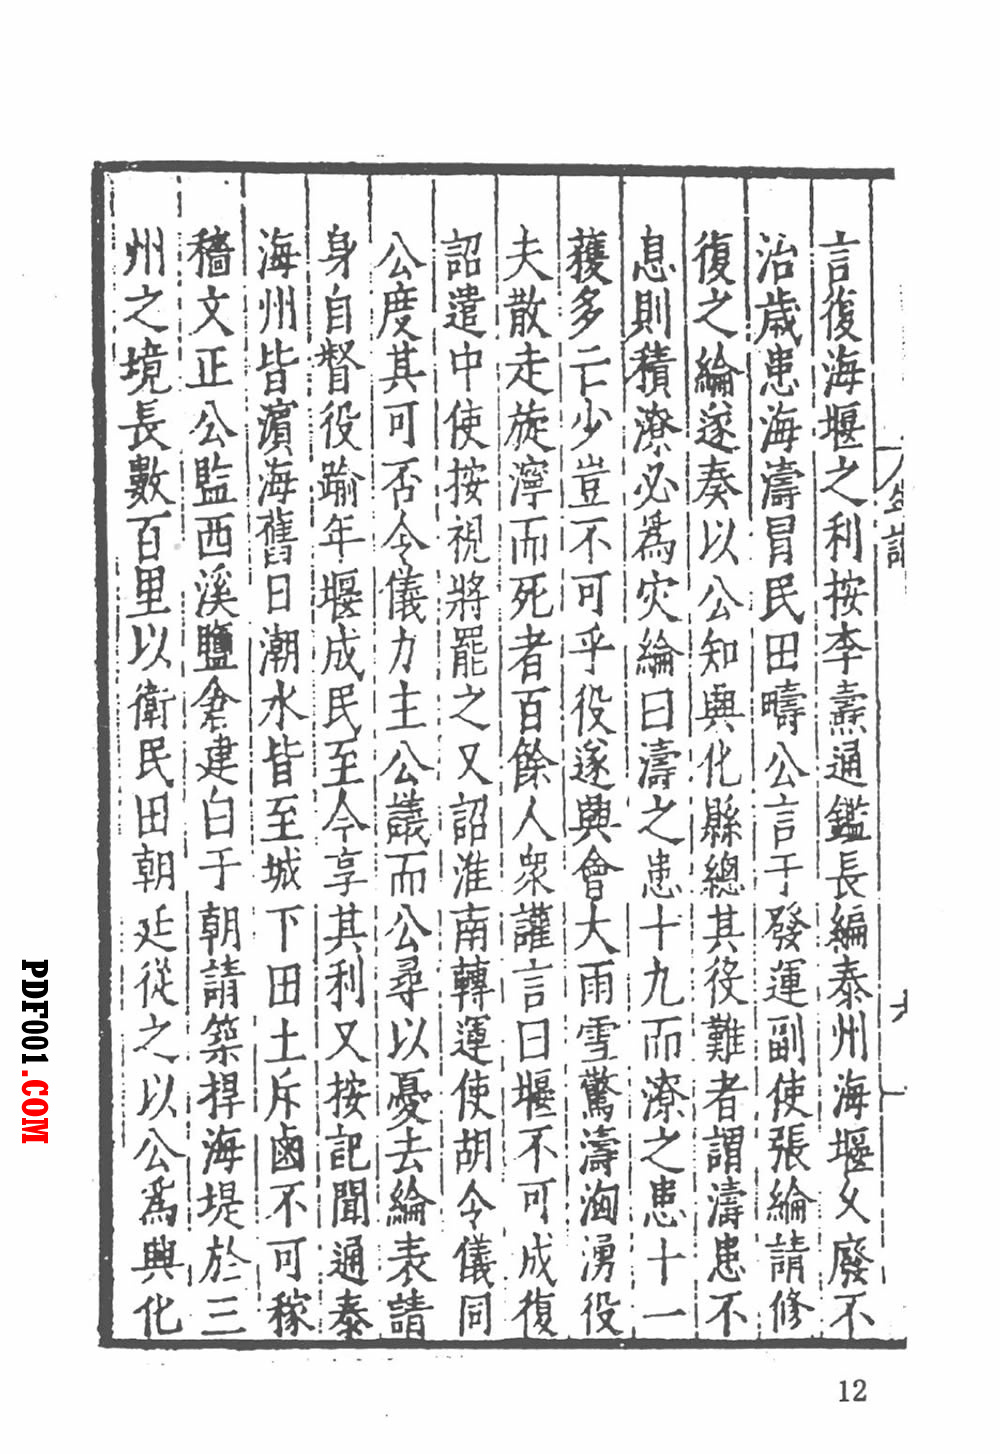 言復海堰之利按李燾通鑑長編泰州海堰久廢不
治歲患海濤冒民田疇公言于發運副使張綸請修
復之綸遂奏以公知興化縣總其役難者謂濤患不
息則積潦必為灾綸曰濤之患十九而潦之患十一
獲多亡少豈不可乎役遂興會大雨雪驚濤洶湧役
夫散走旋濘而死者百餘人衆讙言曰堰不可成復
詔遣中使按視將罷之又詔淮南轉運使胡令儀同
公度其可否令儀力主公議而公尋以憂去綸表請
身自督役踰年堰成民至今享其利又按記聞通泰
海州皆濵海舊日潮水皆至城下田土斥鹵不可稼
穡文正公監西溪鹽倉建白于朝請築捍海堤於三
州之境長數百里以衛民田朝廷從之以公為興化
12
PDF001.COM